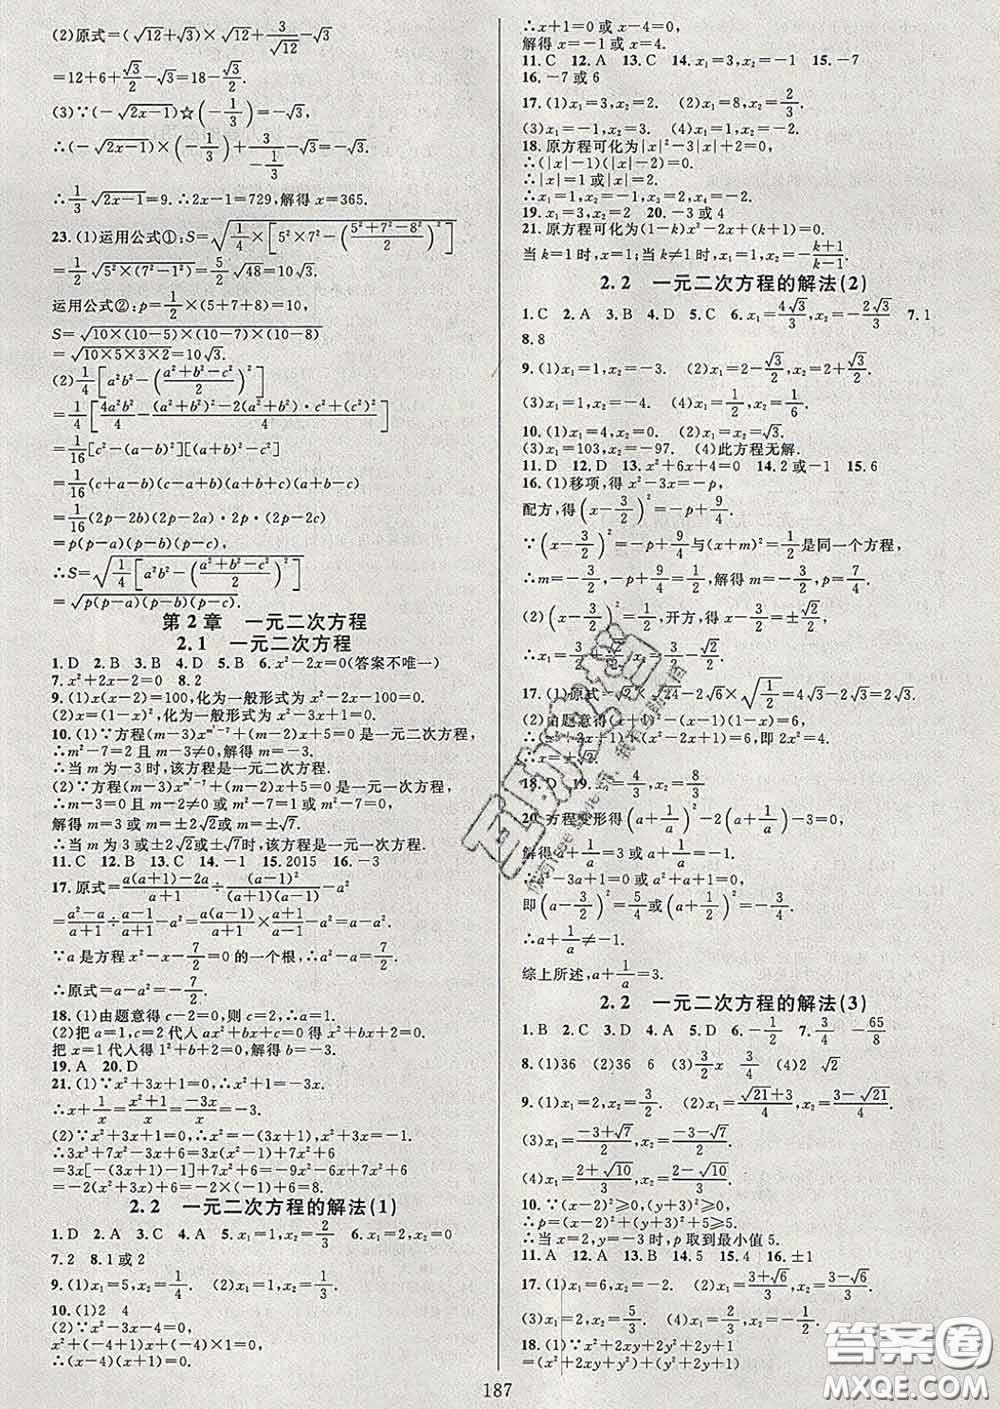 (2)原式=(√12+√3)×√12+3/√12-√3
=12+6+√3/2-√3=18-√3/2.
(3)∵(-√(2x-1))☆(-1/3)=-√3,
∴(-√(2x-1))×(-1/3)+3/(-1/3)-√3=-√3.
∴1/3√(2x-1)=9.∴2x-1=729,解得 x=365.
23.(1)运用公式①:S=√(1/4×[5²×7²-((5²+7²-8²)/2)²])
=1/2√(5²(7²-1²))=5/2√48=10√3.
运用公式②:p=1/2×(5+7+8)=10,
S=√(10×(10-5)×(10-7)×(10-8))
=√(10×5×3×2)=10√3.
(2)1/4[a²b²-((a²+b²-c²)/2)²]
=1/4[4a²b²/4-((a²+b²)²-2(a²+b²)·c²+(c²)²)/4]
=1/16[c²-(a-b)²][(a+b)²-c²]
=1/16(c+a-b)(c-a+b)(a+b+c)(a+b-c)
=1/16(2p-2b)(2p-2a)·2p·(2p-2c)
=p(p-a)(p-b)(p-c),
∴S=√(1/4[a²b²-((a²+b²-c²)/2)²])
=√(p(p-a)(p-b)(p-c)).
第2章 一元二次方程
2.1 一元二次方程
1.D 2.B 3.B 4.D 5.B 6.x²-2x=0(答案不唯一)
7.x²+2x-2=0 8.2
9.(1)x(x-2)=100,化为一般形式为 x²-2x-100=0.
(2)x=(1-x)²,化为一般形式为 x²-3x+1=0.
10.(1)∵方程(m-3)x^(m²-7)+(m-2)x+5=0 是一元二次方程,
∴m²-7=2 且 m-3≠0,解得 m=-3.
∴当 m 为-3时,该方程是一元二次方程.
(2)∵方程(m-3)x^(m²-7)+(m-2)x+5=0 是一元一次方程,
∴m-3=0 且 m-2≠0 或 m²-7=1 或 m²-7=0,
解得 m=3 或 m=±2√2或 m=±√7.
∴当 m 为 3 或±2√2或±√7时,该方程是一元一次方程.
11.C 12.B 13.C 14.-1 15.2015 16.-3
17.原式=(a(a+1)-2a)/(a+1)÷(a-1)²/((a+1)(a-1))-a²
=(a²-a)/(a+1)÷(a-1)/(a+1)-a²=a(a-1)/(a+1)×(a+1)/(a-1)-a²=a-a².
∵a 是方程 x²-x-7/2=0 的一个根,∴a²-a=7/2.
∴原式=a-a²=-7/2.
18.(1)由题意得 c-2=0,则 c=2,∴a=1.
(2)把 a=1,c=2代入 ax²+bx+c=0 得 x²+bx+2=0,
把 x=1代入得 1²+b+2=0,解得 b=-3.
19.A 20.D
21.(1)∵x²+3x+1=0,∴x²+1=-3x.
∴x+1/x=(x²+1)/x=-3x/x=-3.
(2)∵x²+3x+1=0,∴x²=-3x-1.
∴3x³+7x²-3x+6=3x(x²-1)+7x²+6
=3x[-(3x+1)-1]+7x²+6=-9x²-6x+7x²+6
=-2(x²+3x)+6=-2×(-1)+6=8.
2.2 一元二次方程的解法(1)
1.D 2.A 3.C 4.A 5.x₁=1,x₂=2/3 6.x₁=2,x₂=0
7.2 8.1或 2
9.(1)x₁=5,x₂=1/4. (2)x₁=1,x₂=-1/3.
10.(1)2 4
(2)∵x²-3x-4=0,
x²+(-4+1)x+(-4)×1=0,
∴(x-4)(x+1)=0.
∴x+1=0 或 x-4=0,
解得 x=-1或 x=4.
11.C 12.A 13.C 14.x₁=3,x₂=-1 15.-7
16.-7 或 6
17.(1)x₁=3,x₂=2. (2)x₁=8,x₂=2/3.
(3)x₁=-1,x₂=3. (4)x₁=x₂=-2.
18.原方程可化为|x|²-3|x|+2=0,
∴(|x|-1)(|x|-2)=0.
∴|x|=1 或|x|=2.
∴x₁=1,x₂=-1,x₃=2,x₄=-2.
19.x₁=3,x₂=2 20.-3 或 4
21.原方程可化为(1-k)x²-2x+(k+1)=0.
当 k=1时,x=1;当 k≠1 时,x₁=1,x₂=-(k+1)/(k-1).
2.2 一元二次方程的解法(2)
1.C 2.A 3.B 4.D 5.C 6.x₁=4√3/3,x₂=-2√3/3 7.1
8.8
9.(1)x₁=1,x₂=-3. (2)x₁=2-√3/2,x₂=2+√3/2.
(3)x₁=1,x₂=-4. (4)x₁=1/2,x₂=1/6.
10.(1)x₁=4,x₂=0. (2)x₁=x₂=√3.
(3)x₁=103,x₂=-97. (4)此方程无解.
11.D 12.D 13.x²+6x+4=0 14.2或-1 15.6
16.(1)移项,得 x²-3x=-p,
配方,得(x-3/2)²=-p+9/4.
∵(x-3/2)²=-p+9/4与(x+m)²=1/2是同一个方程,
∴m=-3/2,-p+9/4=1/2,解得 m=-3/2,p=7/4.
(2)(x-3/2)²=1/2,开方,得 x-3/2=±√2/2.
∴x₁=3/2+√2/2,x₂=3/2-√2/2.
17.(1)原式=√2×√24-2√6×√(1/2)=4√3-2√3=2√3.
(2)由题意得(x+1)²-(1-x)(x+1)=6,
+1=6,即 2x²=4.
∴x=±√2.
18.D 19.
20.方程变形得(a+1/a)²-2(a+1/a)-3=0,
解得a+1/a=3或 a+1/a=-1.
∴a²-3a+1=0 或 a²+a+1=0,
即(a-3/2)²=5/4或(a+1/2)²=-3/4.
∴a+1/a≠-1.
综上所述,a+1/a=3.
2.2 一元二次方程的解法(3)
1.B 2.C 3.D 4.A 5.D 6.-1/2 7.3/4 -65/8
8.(1)36 (2)36 6 (3)3/2x 3/4 (4)2 √2
9.(1)x₁=2,x₂=3/2. (2)x₁=(√21+3)/4,x₂=(3-√21)/4.
(3)x₁=(-3+√7)/2,x₂=(-3-√7)/2.
(4)x₁=(2+√10)/3,x₂=(2-√10)/3.
10.∵(x-2)²≥0,(y+3)²≥0,
∴p=(x-2)²+(y+3)²+5≥5.
∴当 x=2,y=-3 时,p 取到最小值 5.
11.A 12.A 13.B 14.5 15.4 16.±1
17.(1)x₁=6,x₂=-2. (2)x₁=(3+√6)/3,x₂=(3-√6)/3.
(3)x₁=2,x₂=5/3. (4)x₁=-3,x₂=2/3.
18.(1)∵x²+2xy+2y²+2y+1
=(x²+2xy+y²)+(y²+2y+1)
187
答案圈
MXQE.COM